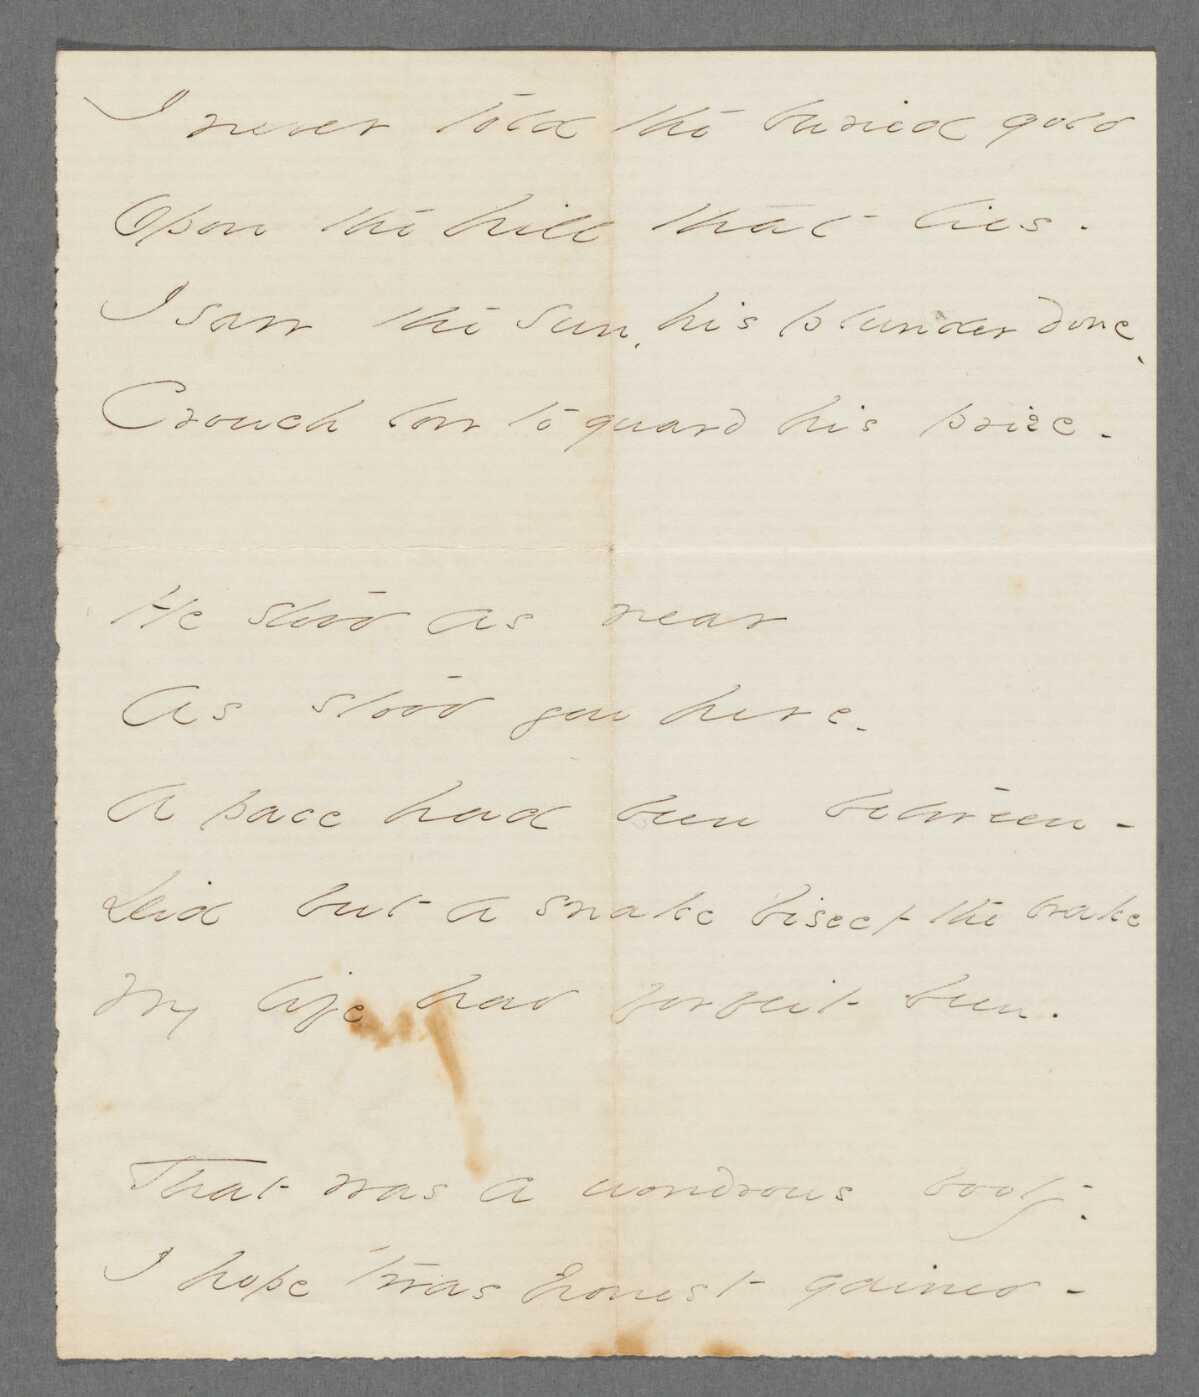 I never told the buried gold
Upon the hill that lies.
I saw the Sun, his plunder done,
Crouch low to guard his prize.
He stood as near
As stood you here.
A pace had been between -
Did but a snake bisect the brake
My life had forfeit been.
That was a wondrous booty.
I hope 'twas honest gained -